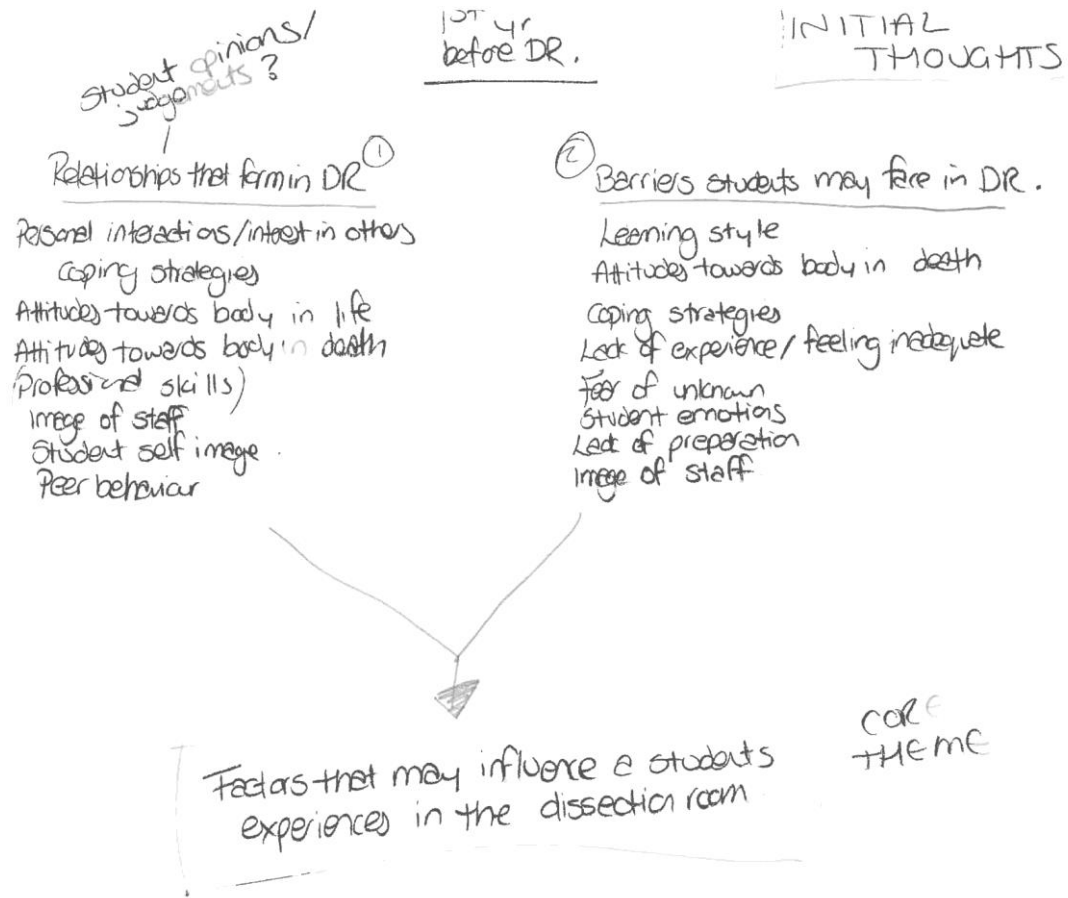 Student opinions/
judgements?
1ST yr
before DR.
INITIAL
THOUGHTS
Relationships that form in DR ①
Personal interactions/interest in others
Coping strategies
Attitudes towards body in life
Attitudes towards body in death
(Professional skills)
Image of staff
Student self image.
Peer behaviour
② Barriers students may face in DR.
Learning style
Attitudes towards body in death
Coping strategies
Lack of experience/feeling inadequate
Fear of unknown
Student emotions
Lack of preparation
Image of staff
CORE
THEME
Factors that may influence a students
experiences in the dissection room